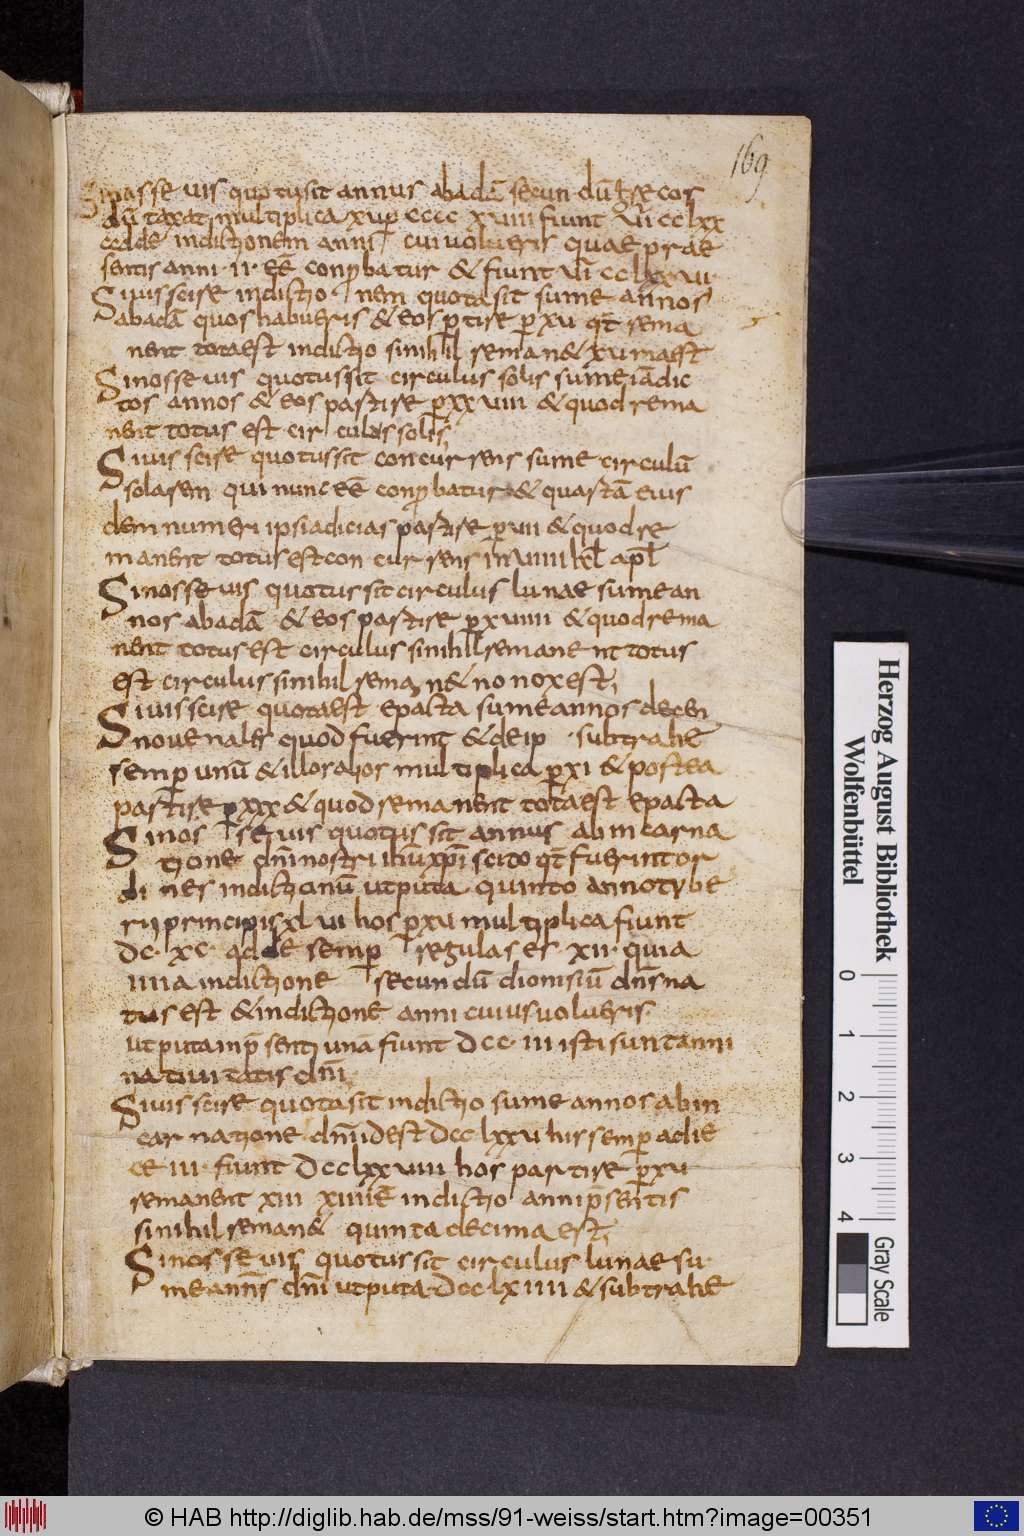 169
Sinosse uis quotus sit annus ab adā secundū
dū taxat multiplica xu p̄ cccc xuiiii fiunt ui cc lxx
adde indictionem anni cui uolueris quae prae
sentis anni · ii · eē conp̄batur & fiunt ui cc lxxuii
Si uis scire indictionem quota sit sume annos
ab adā quos habueris & eos partire p̄ xu qd̄ rema
nent tota est indictio si nihil remanet xu ma est
Si nosse uis quotus sit circulus solis sume iā dic
tos annos & eos partire p̄ xxuiii & quod rema
nent totus est circulus solis;
Si uis scire quotus sit concurrens sume circulū
solarem qui nunc eē conp̄batur & quartā eius
dem numeri ipsi adicias partire p̄ uii & quod re
manent totus est concurrens in uiiii kl apl
Si nosse uis quotus sit circulus lunae sume an
nos ab adā & eos partire p̄ xuiiii & quod rema
nent totus est circulus si nihil remanent totus
est circulus si nihil remanet non nox est;
Si uis scire quota est epacta sume annos decen
nouenales quod fuerint & de ip subtrahe
semp unū & illoratior multiplica p̄ xi & postea
partire p̄ xxx & quod remanent tota est epacta
Si nosse uis quotus sit annus ab incarna
tione dn̄i nostri ihū xp̄i scito qd̄ fuerint or
di nes indictionū ut puta quinto anno tybe
rii principis xlui hos p̄ xu multiplica fiunt
dc · xc · adde semp regulares · xii · quia
iiii a indictione secundū dionisiū dn̄s na
tus est & indictione anni cuius uolueris
ut puta in p̄senti una fiunt dcc · iii isti sunt anni
natiuitatis dn̄i;
Si uis scire quota sit indictio sume annos ab in
carnatione dn̄i id est dcc lxxu his semp adie
ce iii · fiunt dcclxxuiii hos partire p̄ xu
remanent xiii xiii eē indictio anni p̄sentis
si nihil remanet quinta decima est;
Si nosse uis quotus sit circulus lunae su
me annos dn̄i ut puta dcc lxiiii & subtrahe
Herzog August Bibliothek
Wolfenbüttel
0
1
2
3
4
Gray Scale
© HAB http://diglib.hab.de/mss/91-weiss/start.htm?image=00351